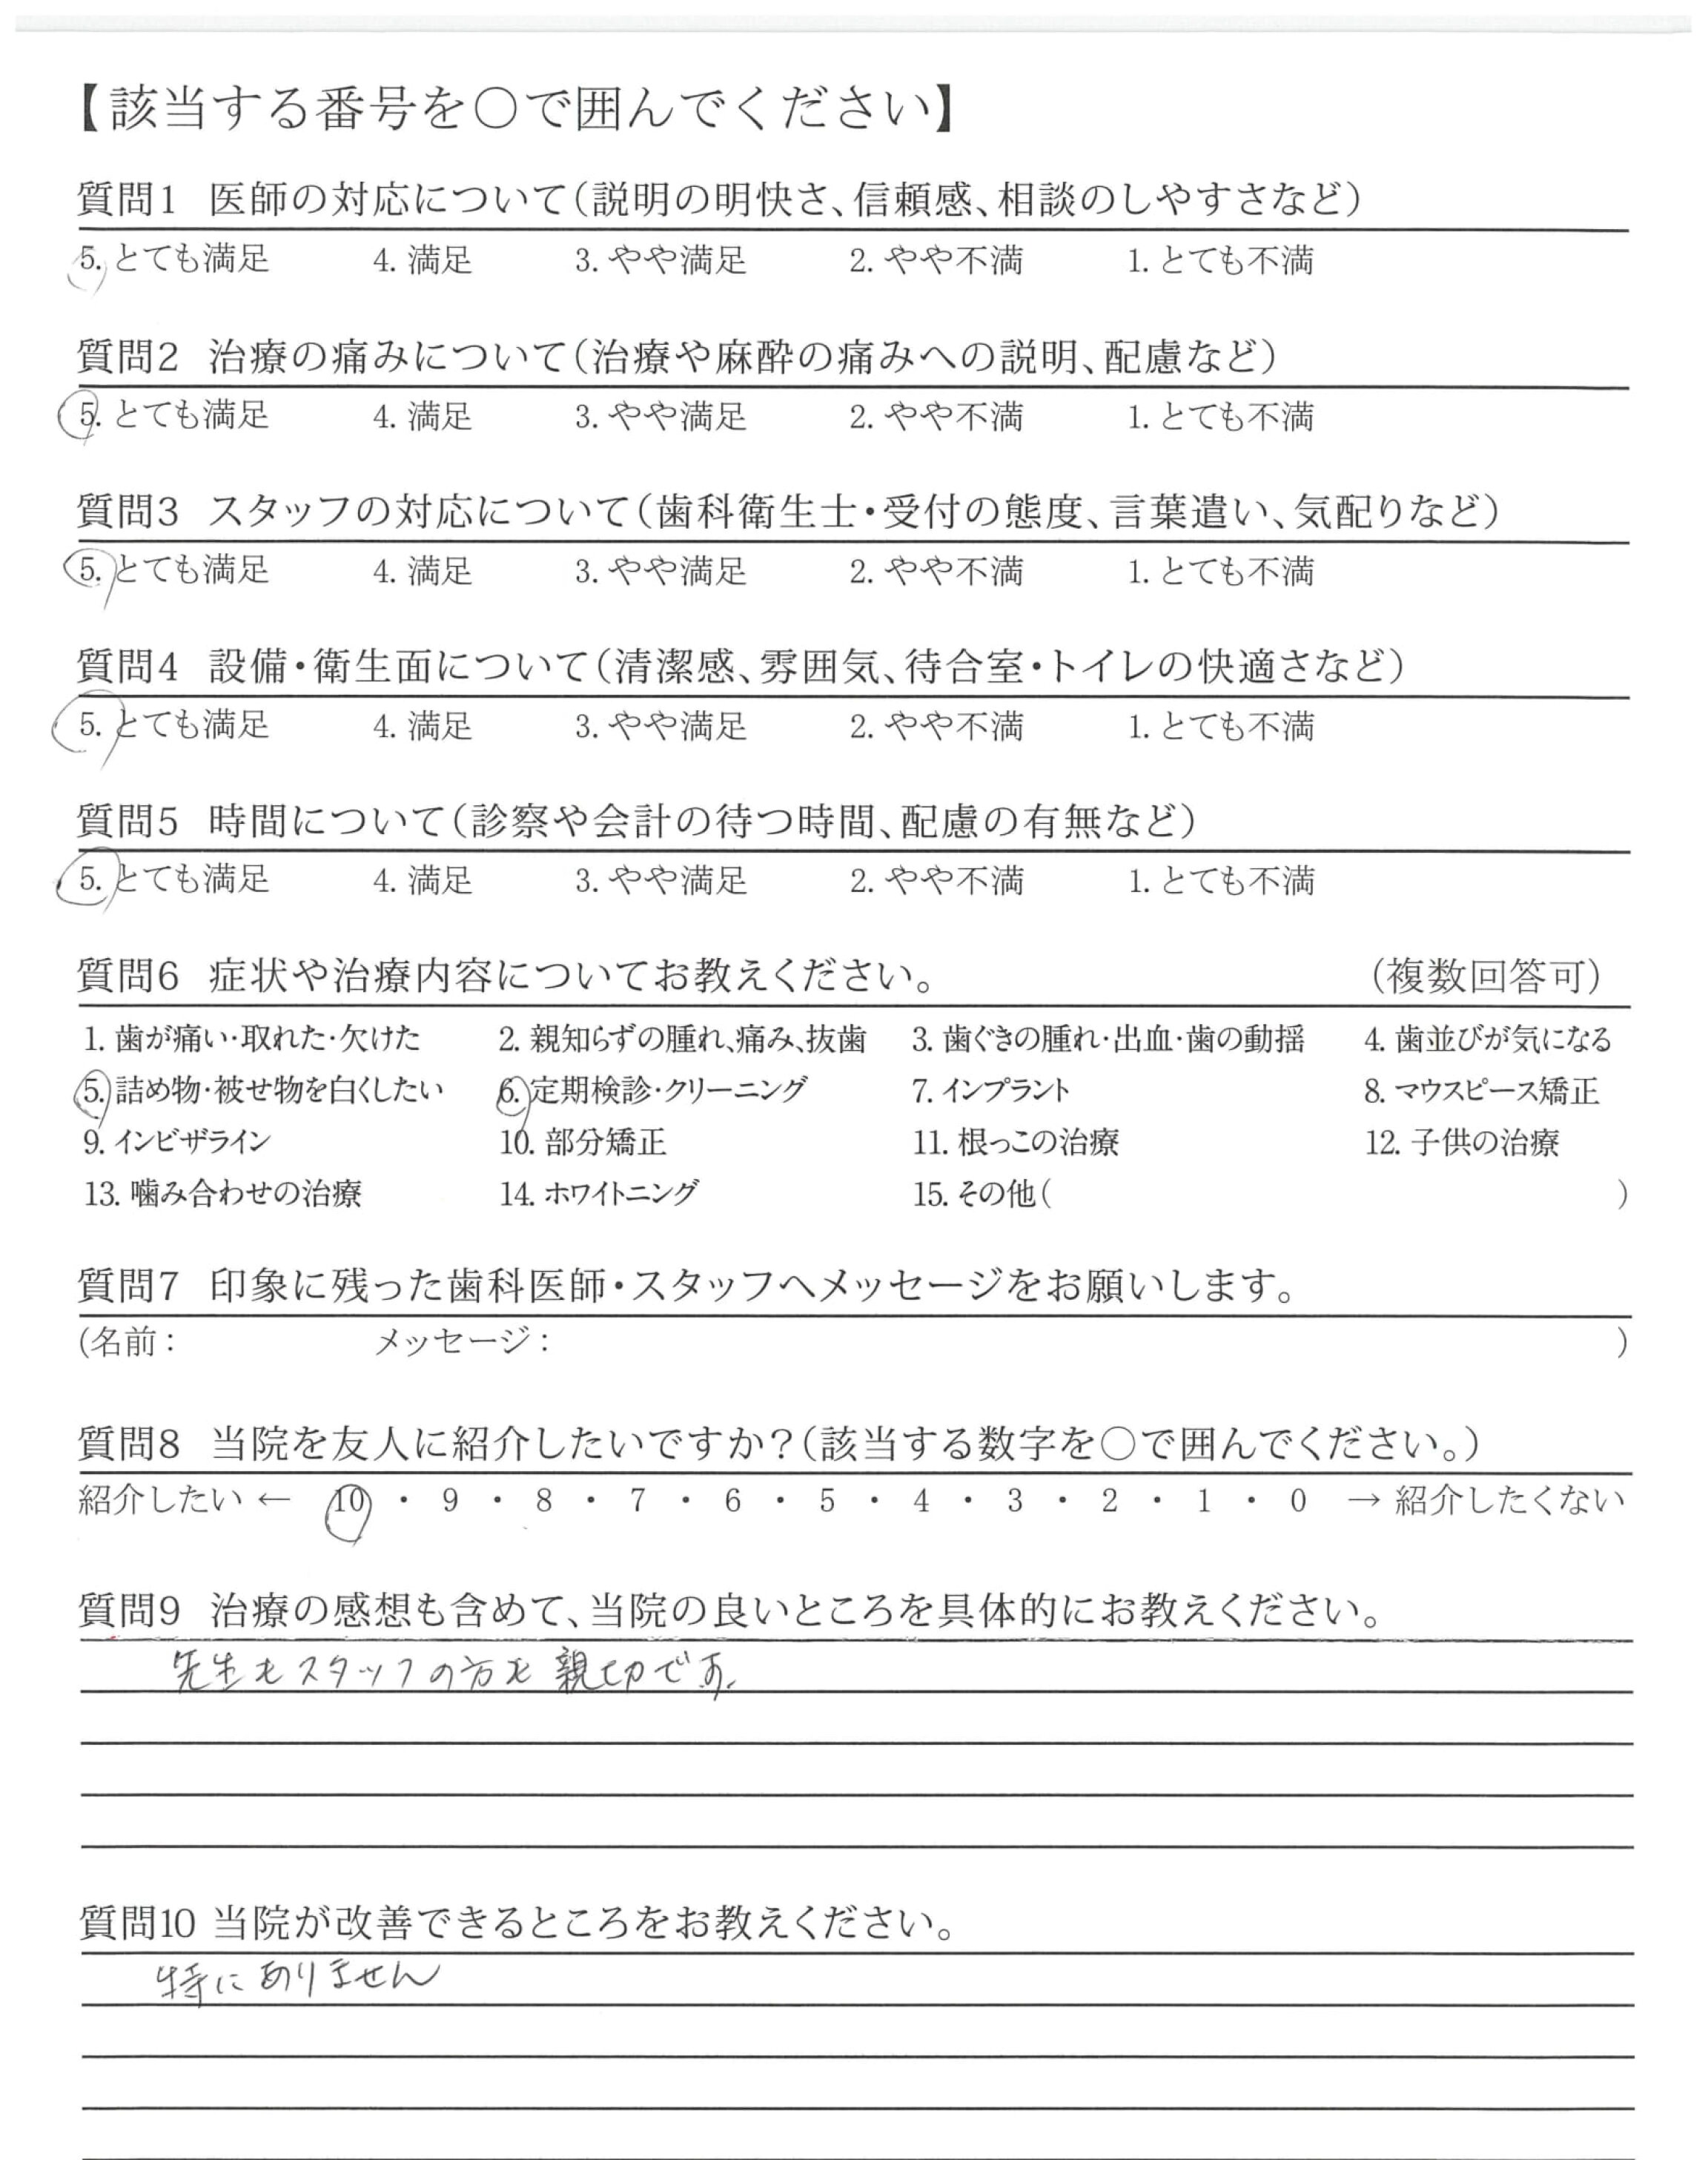 【該当する番号を○で囲んでください】
質問1 医師の対応について(説明の明快さ、信頼感、相談のしやすさなど)
5. とても満足 4. 満足 3. やや満足 2. やや不満 1. とても不満
質問2 治療の痛みについて(治療や麻酔の痛みへの説明、配慮など)
5. とても満足 4. 満足 3. やや満足 2. やや不満 1. とても不満
質問3 スタッフの対応について(歯科衛生士・受付の態度、言葉遣い、気配りなど)
5. とても満足 4. 満足 3. やや満足 2. やや不満 1. とても不満
質問4 設備・衛生面について(清潔感、雰囲気、待合室・トイレの快適さなど)
5. とても満足 4. 満足 3. やや満足 2. やや不満 1. とても不満
質問5 時間について(診察や会計の待つ時間、配慮の有無など)
5. とても満足 4. 満足 3. やや満足 2. やや不満 1. とても不満
質問6 症状や治療内容についてお教えください。 (複数回答可)
1. 歯が痛い・取れた・欠けた 2. 親知らずの腫れ、痛み、抜歯 3. 歯ぐきの腫れ・出血・歯の動揺 4. 歯並びが気になる
5. 詰め物・被せ物を白くしたい 6. 定期検診・クリーニング 7. インプラント 8. マウスピース矯正
9. インビザライン 10. 部分矯正 11. 根っこの治療 12. 子供の治療
13. 噛み合わせの治療 14. ホワイトニング 15. その他( )
質問7 印象に残った歯科医師・スタッフへメッセージをお願いします。
(名前: メッセージ: )
質問8 当院を友人に紹介したいですか?(該当する数字を○で囲んでください。)
紹介したい ← 10 ・ 9 ・ 8 ・ 7 ・ 6 ・ 5 ・ 4 ・ 3 ・ 2 ・ 1 ・ 0 → 紹介したくない
質問9 治療の感想も含めて、当院の良いところを具体的にお教えください。
先生もスタッフの方も親切です。
質問10 当院が改善できるところをお教えください。
特にありません